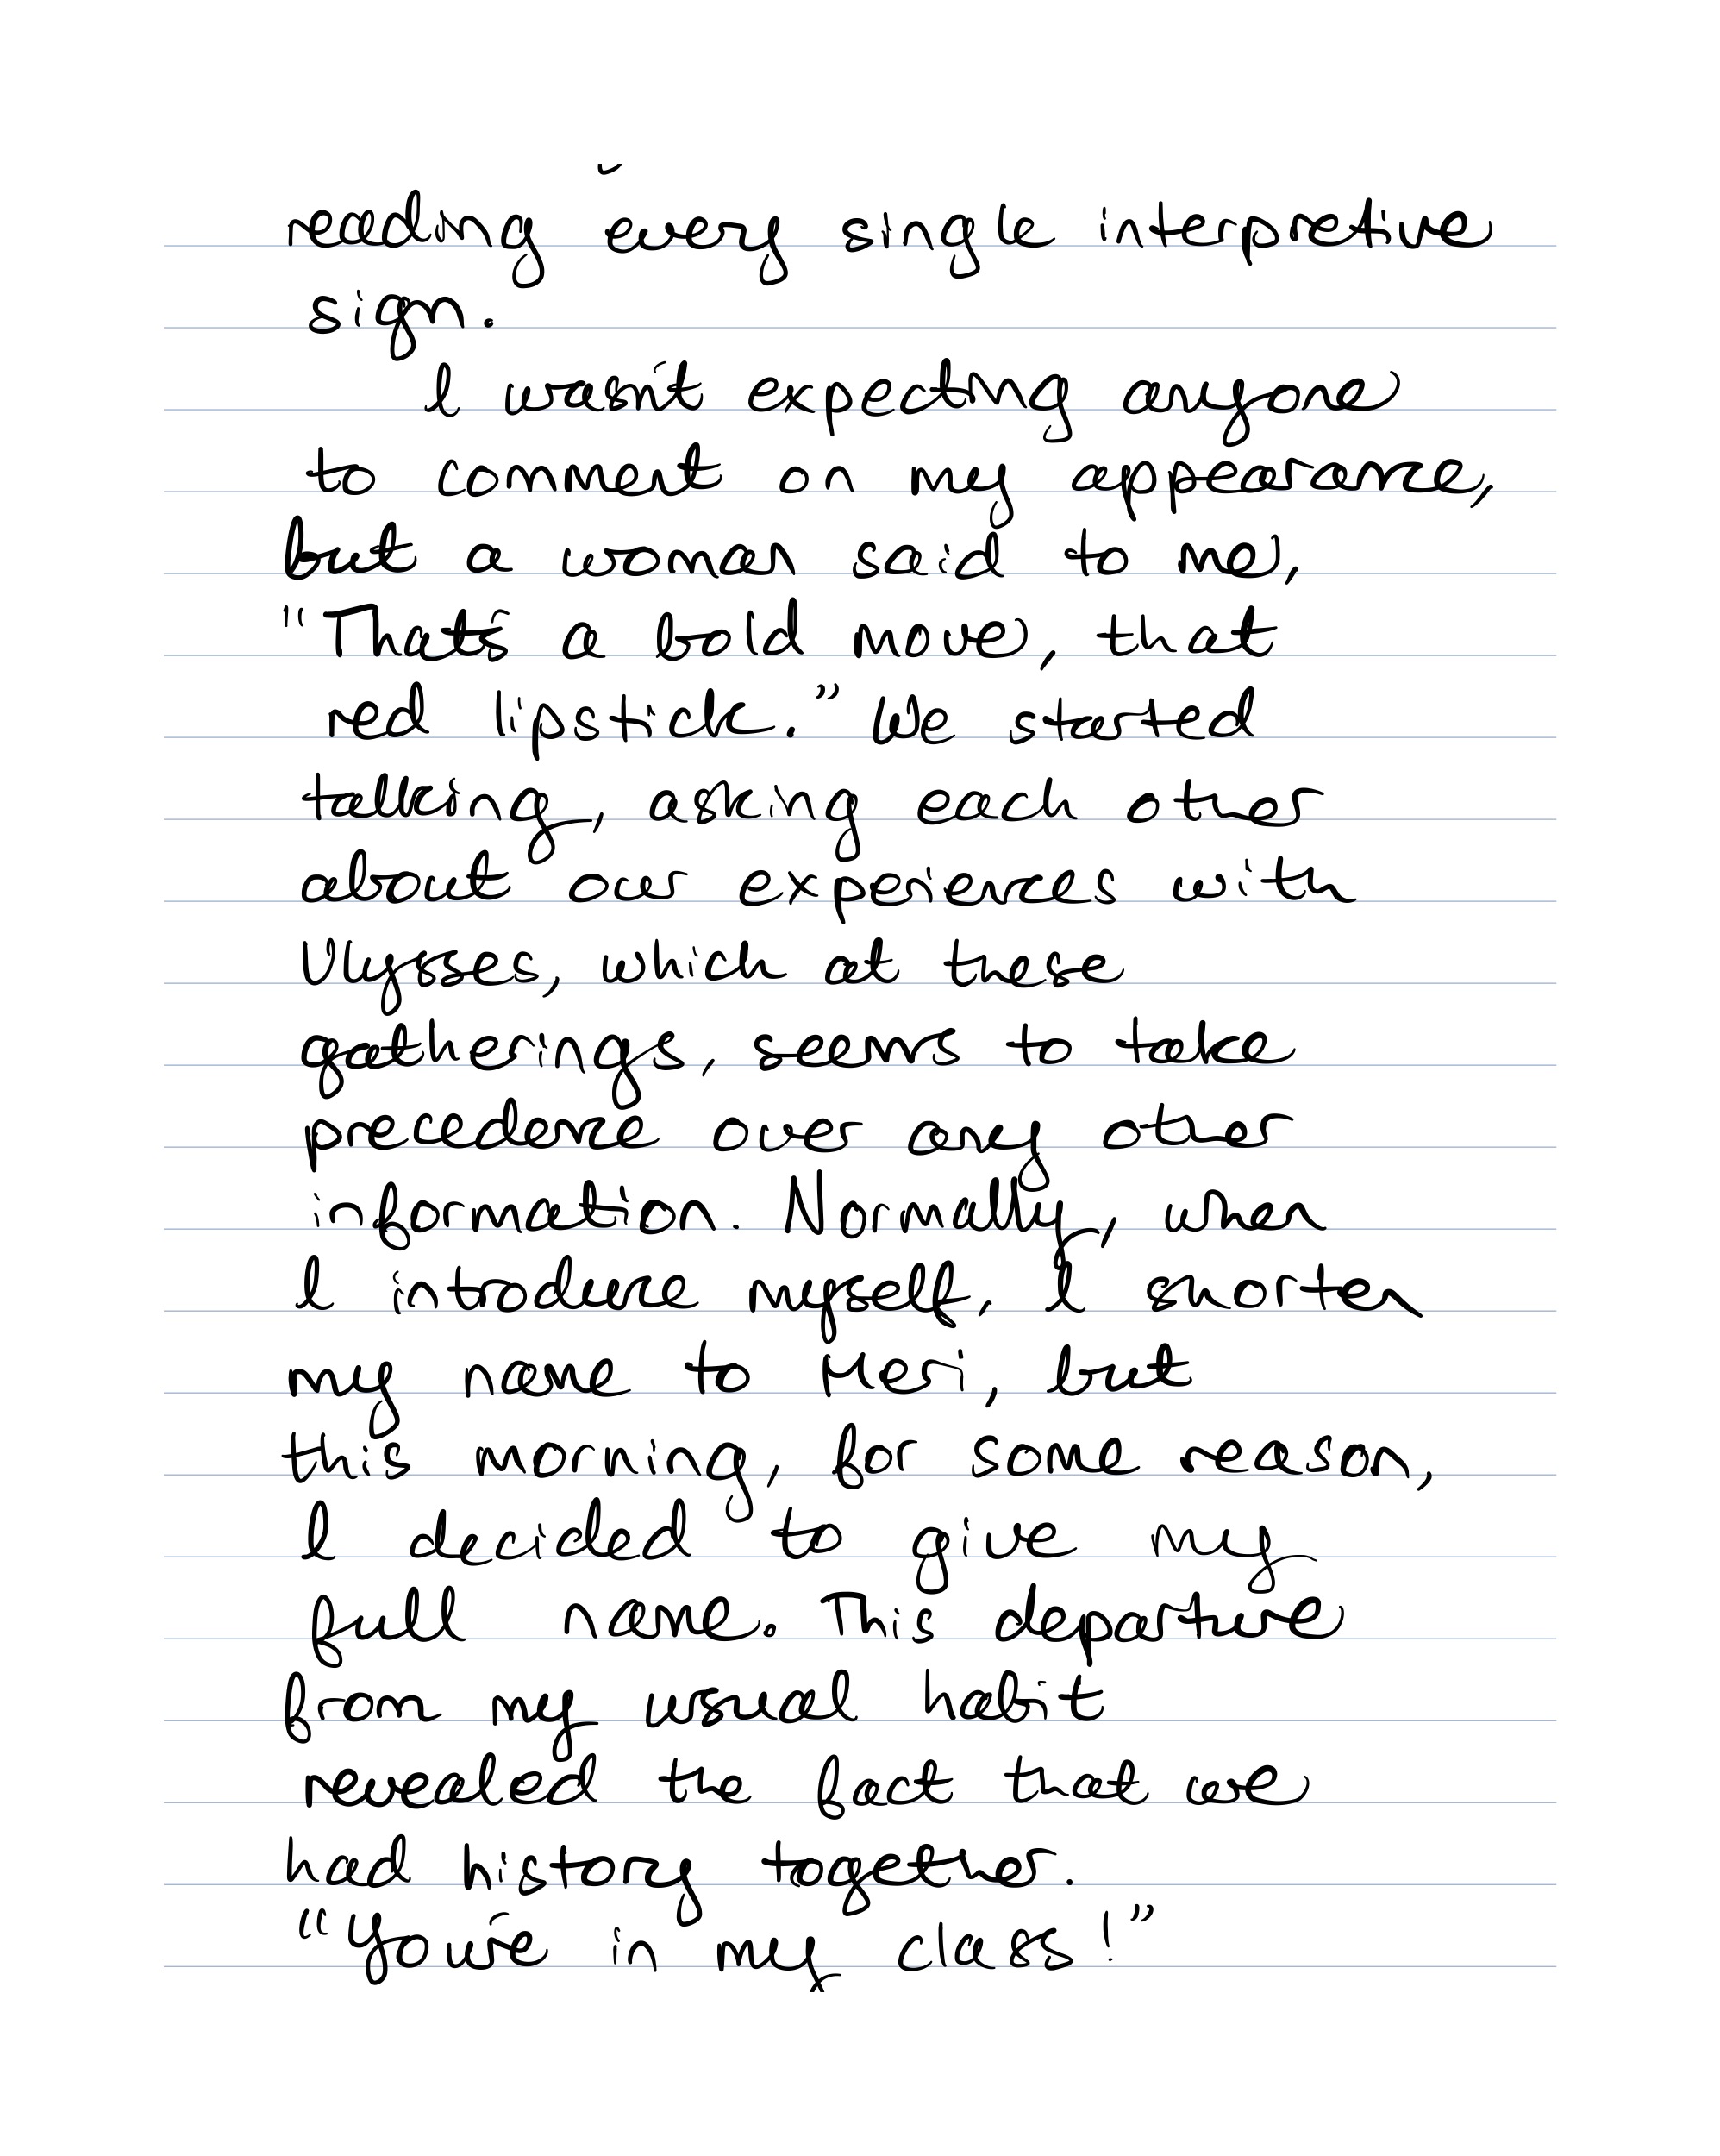 reading every single interpretive
sign.
I wasn't expecting anyone
to comment on my appearance,
but a woman said to me,
"That's a bold move, that
red lipstick." We started
talking, asking each other
about our experiences with
Ulysses, which at these
gatherings, seems to take
precedence over any other
information. Normally, when
I introduce myself, I shorten
my name to Meri, but
this morning, for some reason,
I decided to give my
full name. This departure
from my usual habit
revealed the fact that we
had history together.
"You're in my class!"